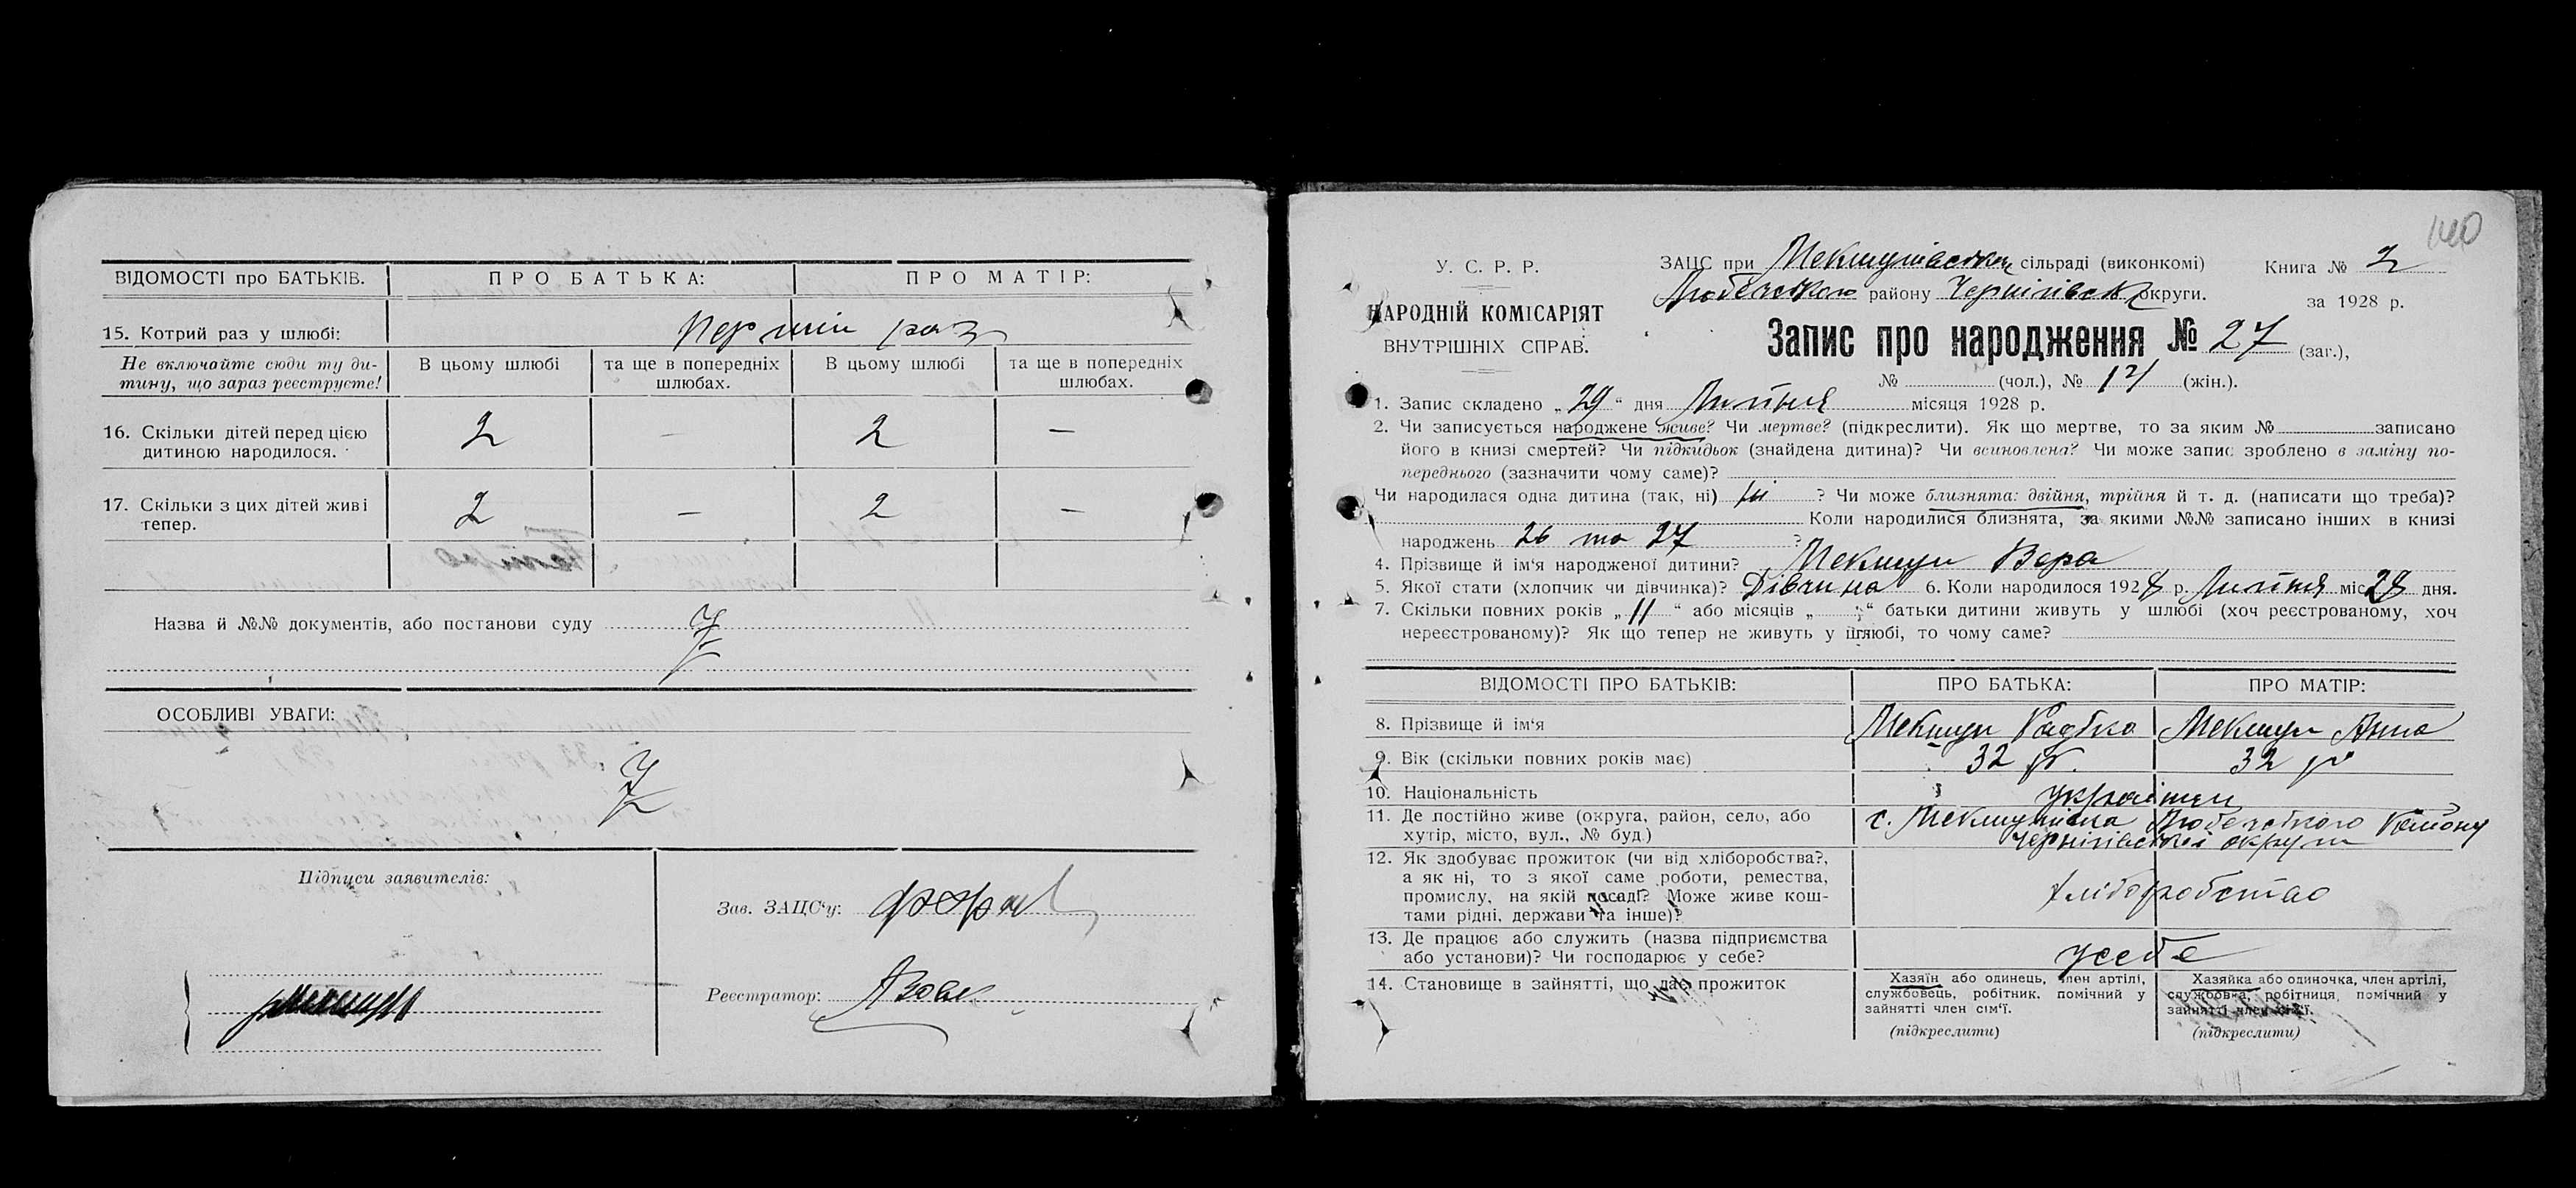 ВІДОМОСТІ про БАТЬКІВ. ПРО БАТЬКА: ПРО МАТІР:
15. Котрий раз у шлюбі: Першій раз
Не включайте сюди ту ди-
тину, що зараз реєструєте!
В цьому шлюбі
та ще в попередніх
шлюбах.
В цьому шлюбі
та ще в попередніх
шлюбах.
16. Скільки дітей перед цією
дитиною народилося.
2 — 2 —
17. Скільки з цих дітей живі
тепер.
2 — 2 —
Назва й №№ документів, або постанови суду
ОСОБЛИВІ УВАГИ:
Підписи заявителів:
Зав. ЗАЦС'у:
Реєстратор:
140
У. С. Р. Р.
НАРОДНІЙ КОМІСАРІЯТ
ВНУТРІШНІХ СПРАВ.
ЗАЦС при сільраді (виконкомі)
Любечського району Чернігівськ округи.
Книга № 2
за 1928 р.
Запис про народження № 27 (заг.),
№ (чол.), № 12 (жін.).
1. Запис складено „29“ дня Липтня місяця 1928 р.
2. Чи записується народжене живе? Чи мертве? (підкреслити). Як що мертве, то за яким № записано
його в книзі смертей? Чи підкидьок (знайдена дитина)? Чи всиновлена? Чи може запис зроблено в заміну по-
переднього (зазначити чому саме)?
Чи народилася одна дитина (так, ні) ні ? Чи може близнята: двійня, трійня й т. д. (написати що треба)?
Коли народилися близнята, за якими №№ записано інших в книзі
народжень 26 та 27 ?
4. Прізвище й ім'я народженої дитини? Мекшун Вера
5. Якої стати (хлопчик чи дівчинка)? Дівчина 6. Коли народилося 1928 р. Липтня міс 28 дня.
7. Скільки повних років „11“ або місяців „ “ батьки дитини живуть у шлюбі (хоч реєстрованому, хоч
нереєстрованому)? Як що тепер не живуть у шлюбі, то чому саме?
ВІДОМОСТІ ПРО БАТЬКІВ: ПРО БАТЬКА: ПРО МАТІР:
8. Прізвище й ім'я Мекшун Мекшун Анна
9. Вік (скільки повних років має) 32 р. 32 р
10. Національність українці
11. Де постійно живе (округа, район, село, або
хутір, місто, вул., № буд.)
с. Мекшунівка Любечського Району
Чернігівської округи
12. Як здобуває прожиток (чи від хліборобства?,
а як ні, то з якої саме роботи, ремества,
промислу, на якій посаді? Може живе кош-
тами рідні, держави та інше)?
хліборобство
13. Де працює або служить (назва підприємства
або установи)? Чи господарює у себе?
усебе
14. Становище в зайнятті, що дає прожиток
Хазяїн або одинець, член артілі,
службовець, робітник. помічний у
зайнятті член сім'ї.
(підкреслити)
Хазяйка або одиночка, член артілі,
службовка, робітниця, помічний у
зайнятті член сім'ї.
(підкреслити)